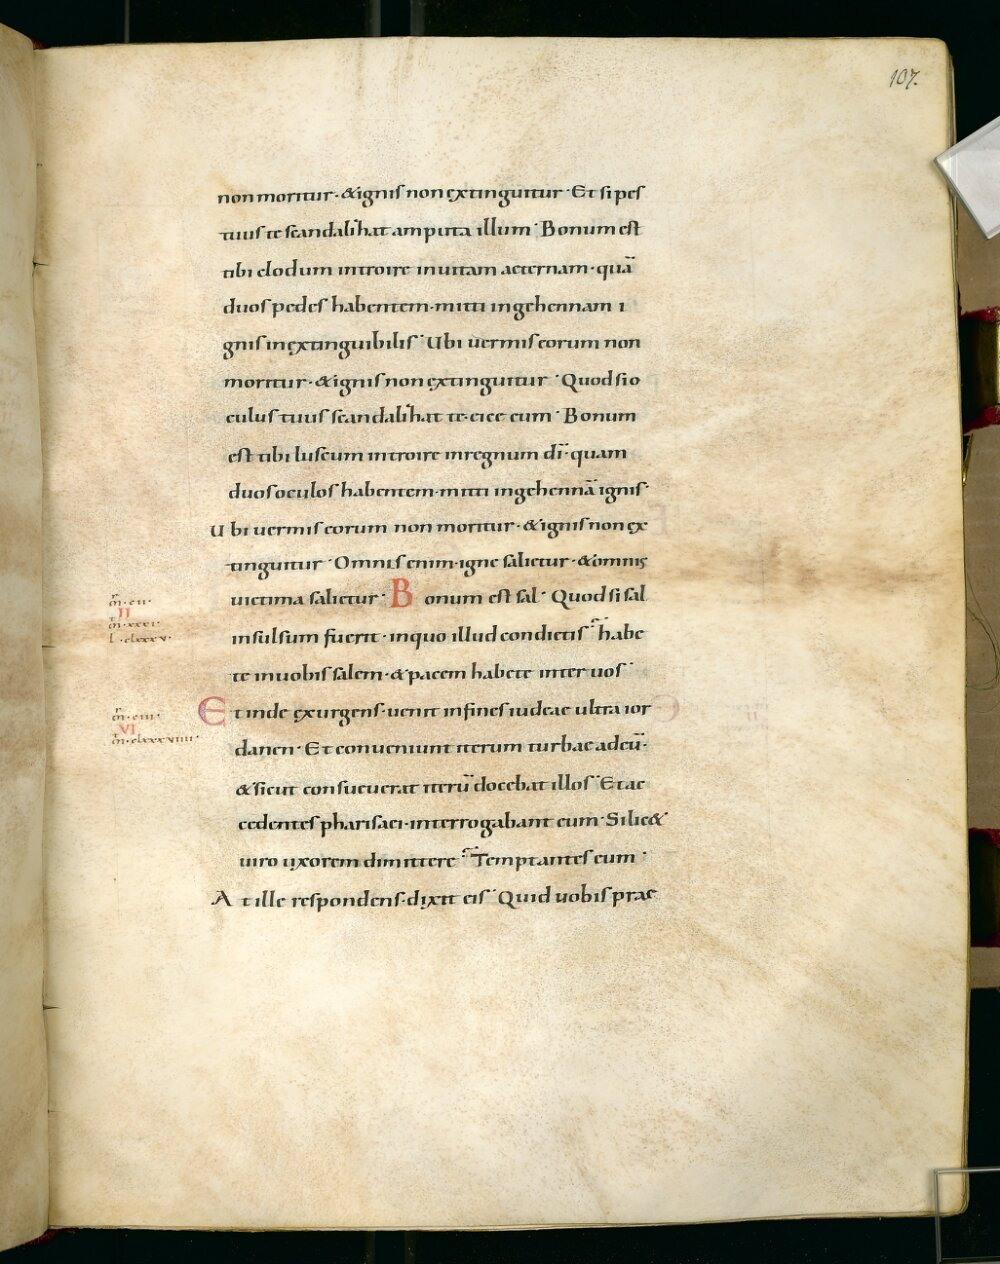 107.
non moritur · & ignis non extinguitur · Et si pes
tuus te scandalizat amputa illum · Bonum est
tibi clodum introire in uitam aeternam · quā
duos pedes habentem · mitti in gehennam i
gnis inextinguibilis · Ubi uermis eorum non
moritur · & ignis non extinguitur · Quod si o
culus tuus scandalizat te · eice eum · Bonum
est tibi luscum introire in regnum dī · quam
duos oculos habentem · mitti in gehennā ignis ·
Ubi uermis eorum non moritur · & ignis non ex
tinguitur · Omnis enim · igne salietur · & omnis
uictima salietur · Bonum est sal · Quod si sal
insulsum fuerit · in quo illud condietis · habe
te in uobis salem · & pacem habete inter uos ·
Et inde exurgens · uenit in fines iudeae ultra ior
danen · Et conueniunt iterum turbae ad eū ·
& sicut consueuerat iterū docebat illos · Et ac
cedentes pharisaei · interrogabant eum · Si lic&
uiro uxorem dimittere · Temptantes eum ·
At ille respondens · dixit eis · Quid uobis prae
m̄ · cii ·
II
m̄ · xxxi ·
l · clxxxv ·
m̄ · ciii ·
VI
m̄ · clxxxviiii ·